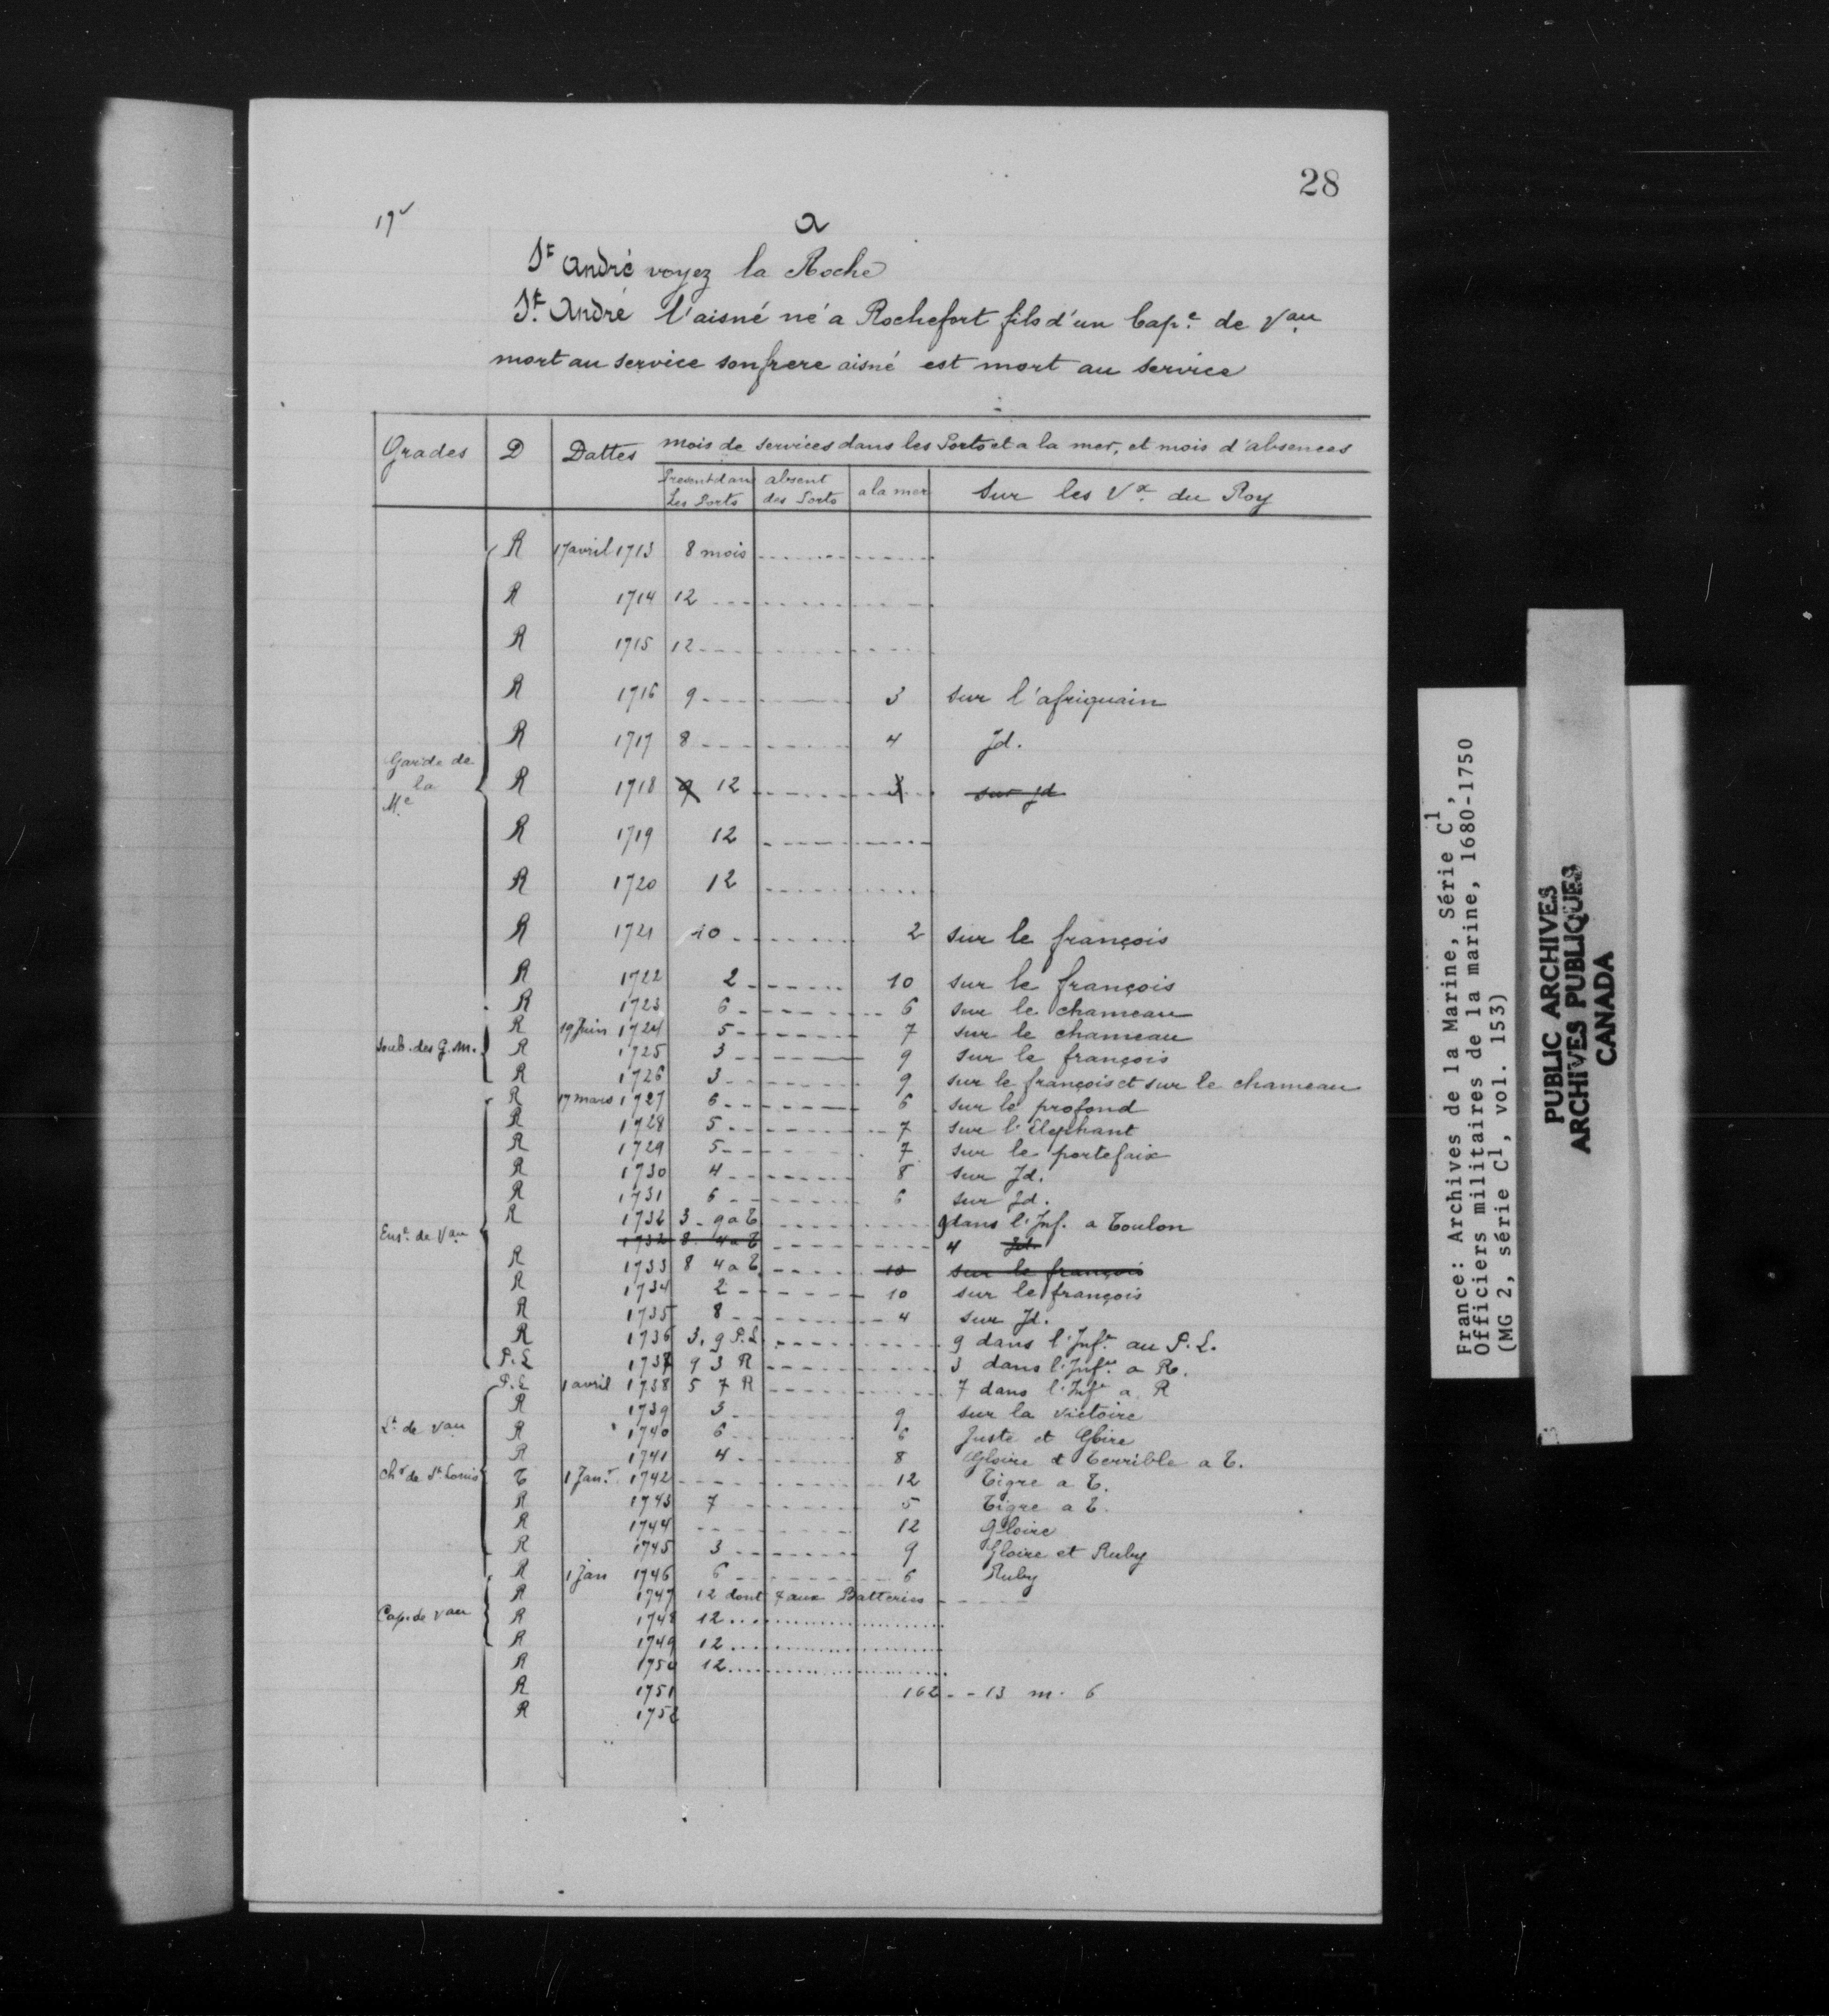 28
19v
a
St André voyez la Roche
St André l'aisné né a Rochefort fils d'un Cap.e de Vau
mort au service son frere aisné est mort au service
Grades D Dattes mois de services dans les Ports et a la mer, et mois d'absences
Present dans les Ports absent des Ports a la mer sur les Vx du Roy
Garde de la Me
R 17 avril 1713 8 mois
R 1714 12
R 1715 12
R 1716 9 3 sur l'afriquain
R 1717 8 4 Jd.
R 1718 9 12 3 sur Jd
R 1719 12
R 1720 12
R 1721 10 2 sur le françois
R 1722 2 10 sur le françois
R 1723 6 6 sur le chameau
R 19 Juin 1724 5 7 sur le chameau
soub. des G.M. R 1725 3 9 sur le françois
R 1726 3 9 sur le françois et sur le chameau
R 17 mars 1727 6 6 sur le profond
R 1728 5 7 sur l'Elephant
R 1729 5 7 sur le portefaix
R 1730 4 8 sur Jd.
R 1731 6 6 sur Jd.
R 1732 3 9 a T 9 dans l'Inf. a Toulon
Ense de Vau 1732 8 4 a T 4 Jd.
R 1733 8 4 a T 10 sur le françois
R 1734 2 10 sur le françois
R 1735 8 4 sur Jd.
R 1736 3. 9 P.L 9 dans l'Infie au P.L.
P.L 1737 9 3 R 3 dans l'Infie a R.
P.L 1 avril 1738 5 7 R 7 dans l'Infie a R
R 1739 3 9 sur la victoire
Lt de Vau R 1740 6 6 Juste et Gloire
R 1741 4 8 Gloire et Terrible a T.
chr de St Louis T 1 Janr 1742 12 Tigre a T.
R 1743 7 5 Tigre a T.
R 1744 12 Gloire
R 1745 3 9 Gloire et Ruby
R 1 Jan 1746 6 6 Ruby
R 1747 12 dont 7 aux Batteries
Cap. de Vau R 1748 12
R 1749 12
R 1750 12
R 1751 162 - - 13 m. 6
R 1752
France: Archives de la Marine, Série C1,
Officiers militaires de la marine, 1680-1750
(MG 2, série C1, vol. 153)
PUBLIC ARCHIVES
ARCHIVES PUBLIQUES
CANADA